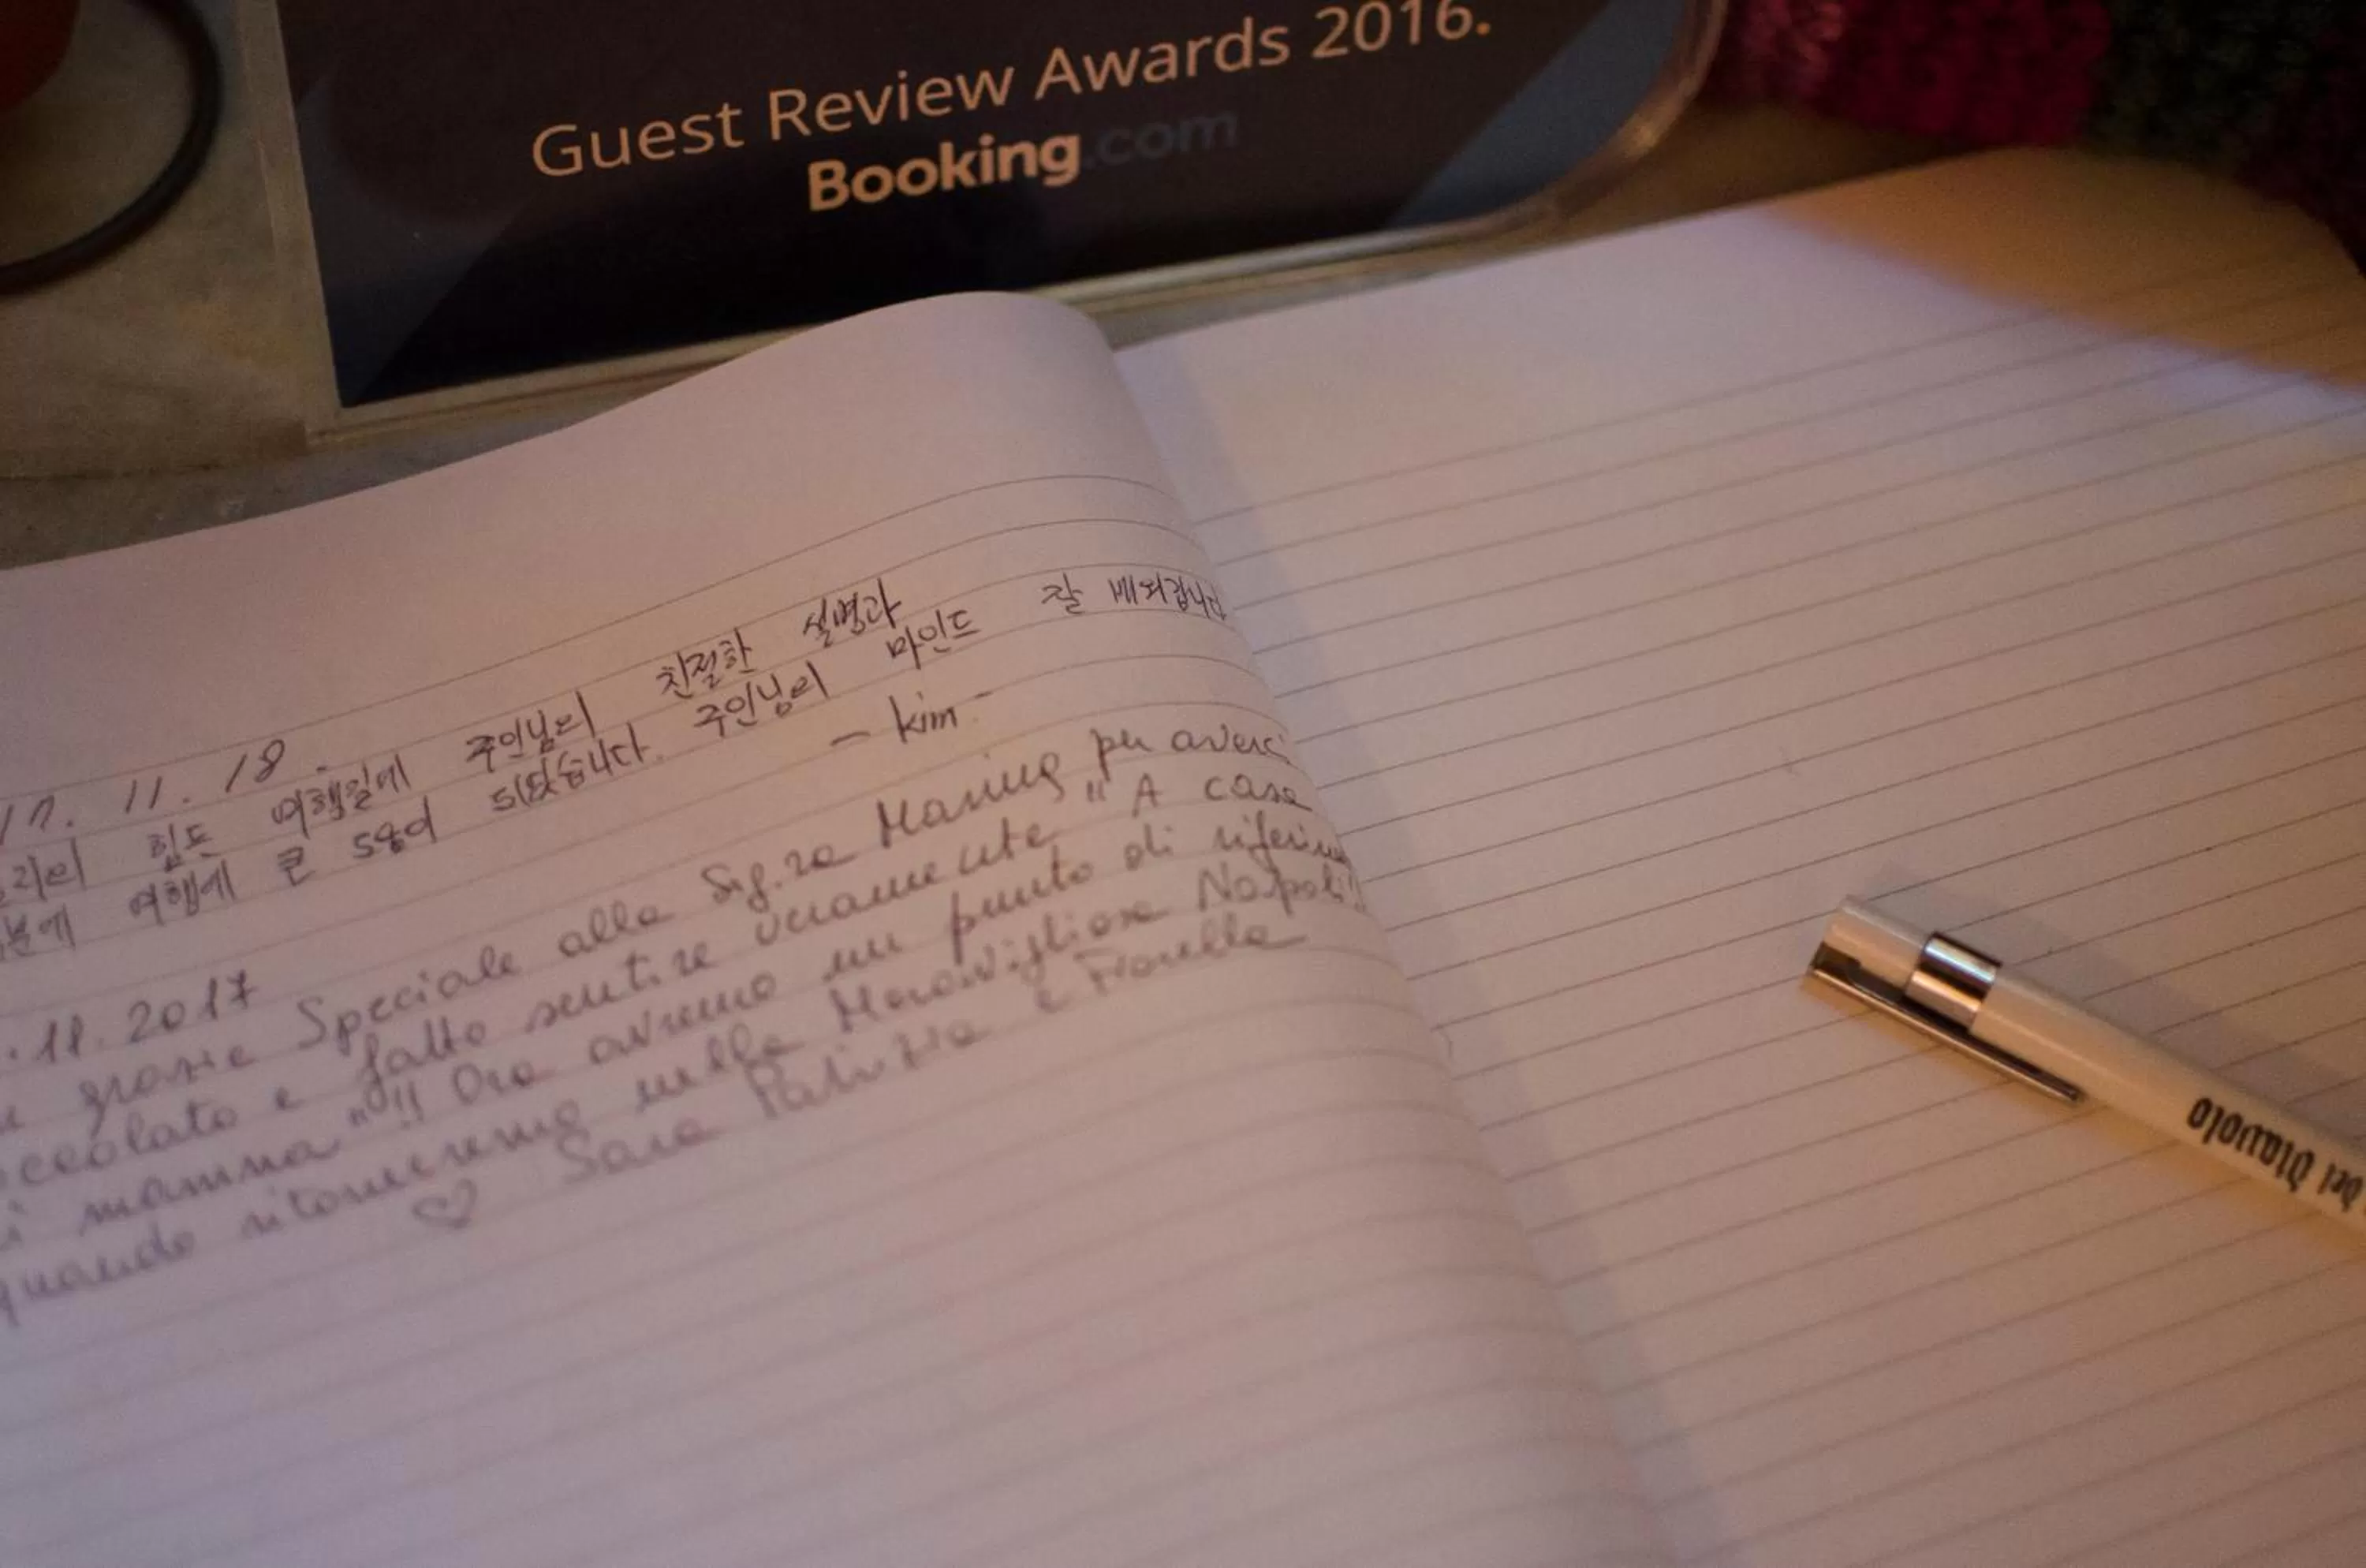 Guest Review Awards 2016.
Booking.com
17. 11. 18.
힘든 여행일에 주인님의 친절한 설명과
여행에 큰 도움이 되었습니다. 주인님의 마인드 잘 배워갑니다
- kim -
.11.2017
grazie Speciale alla Sig.ra Marina per averci
e fatto sentire veramente "A casa
di mamma"!! Ora avremo un punto di riferim
quando ritorneremo nella Meravigliosa Napoli!!
♡ Sara Patrizia e Fiorella
Del Diavolo